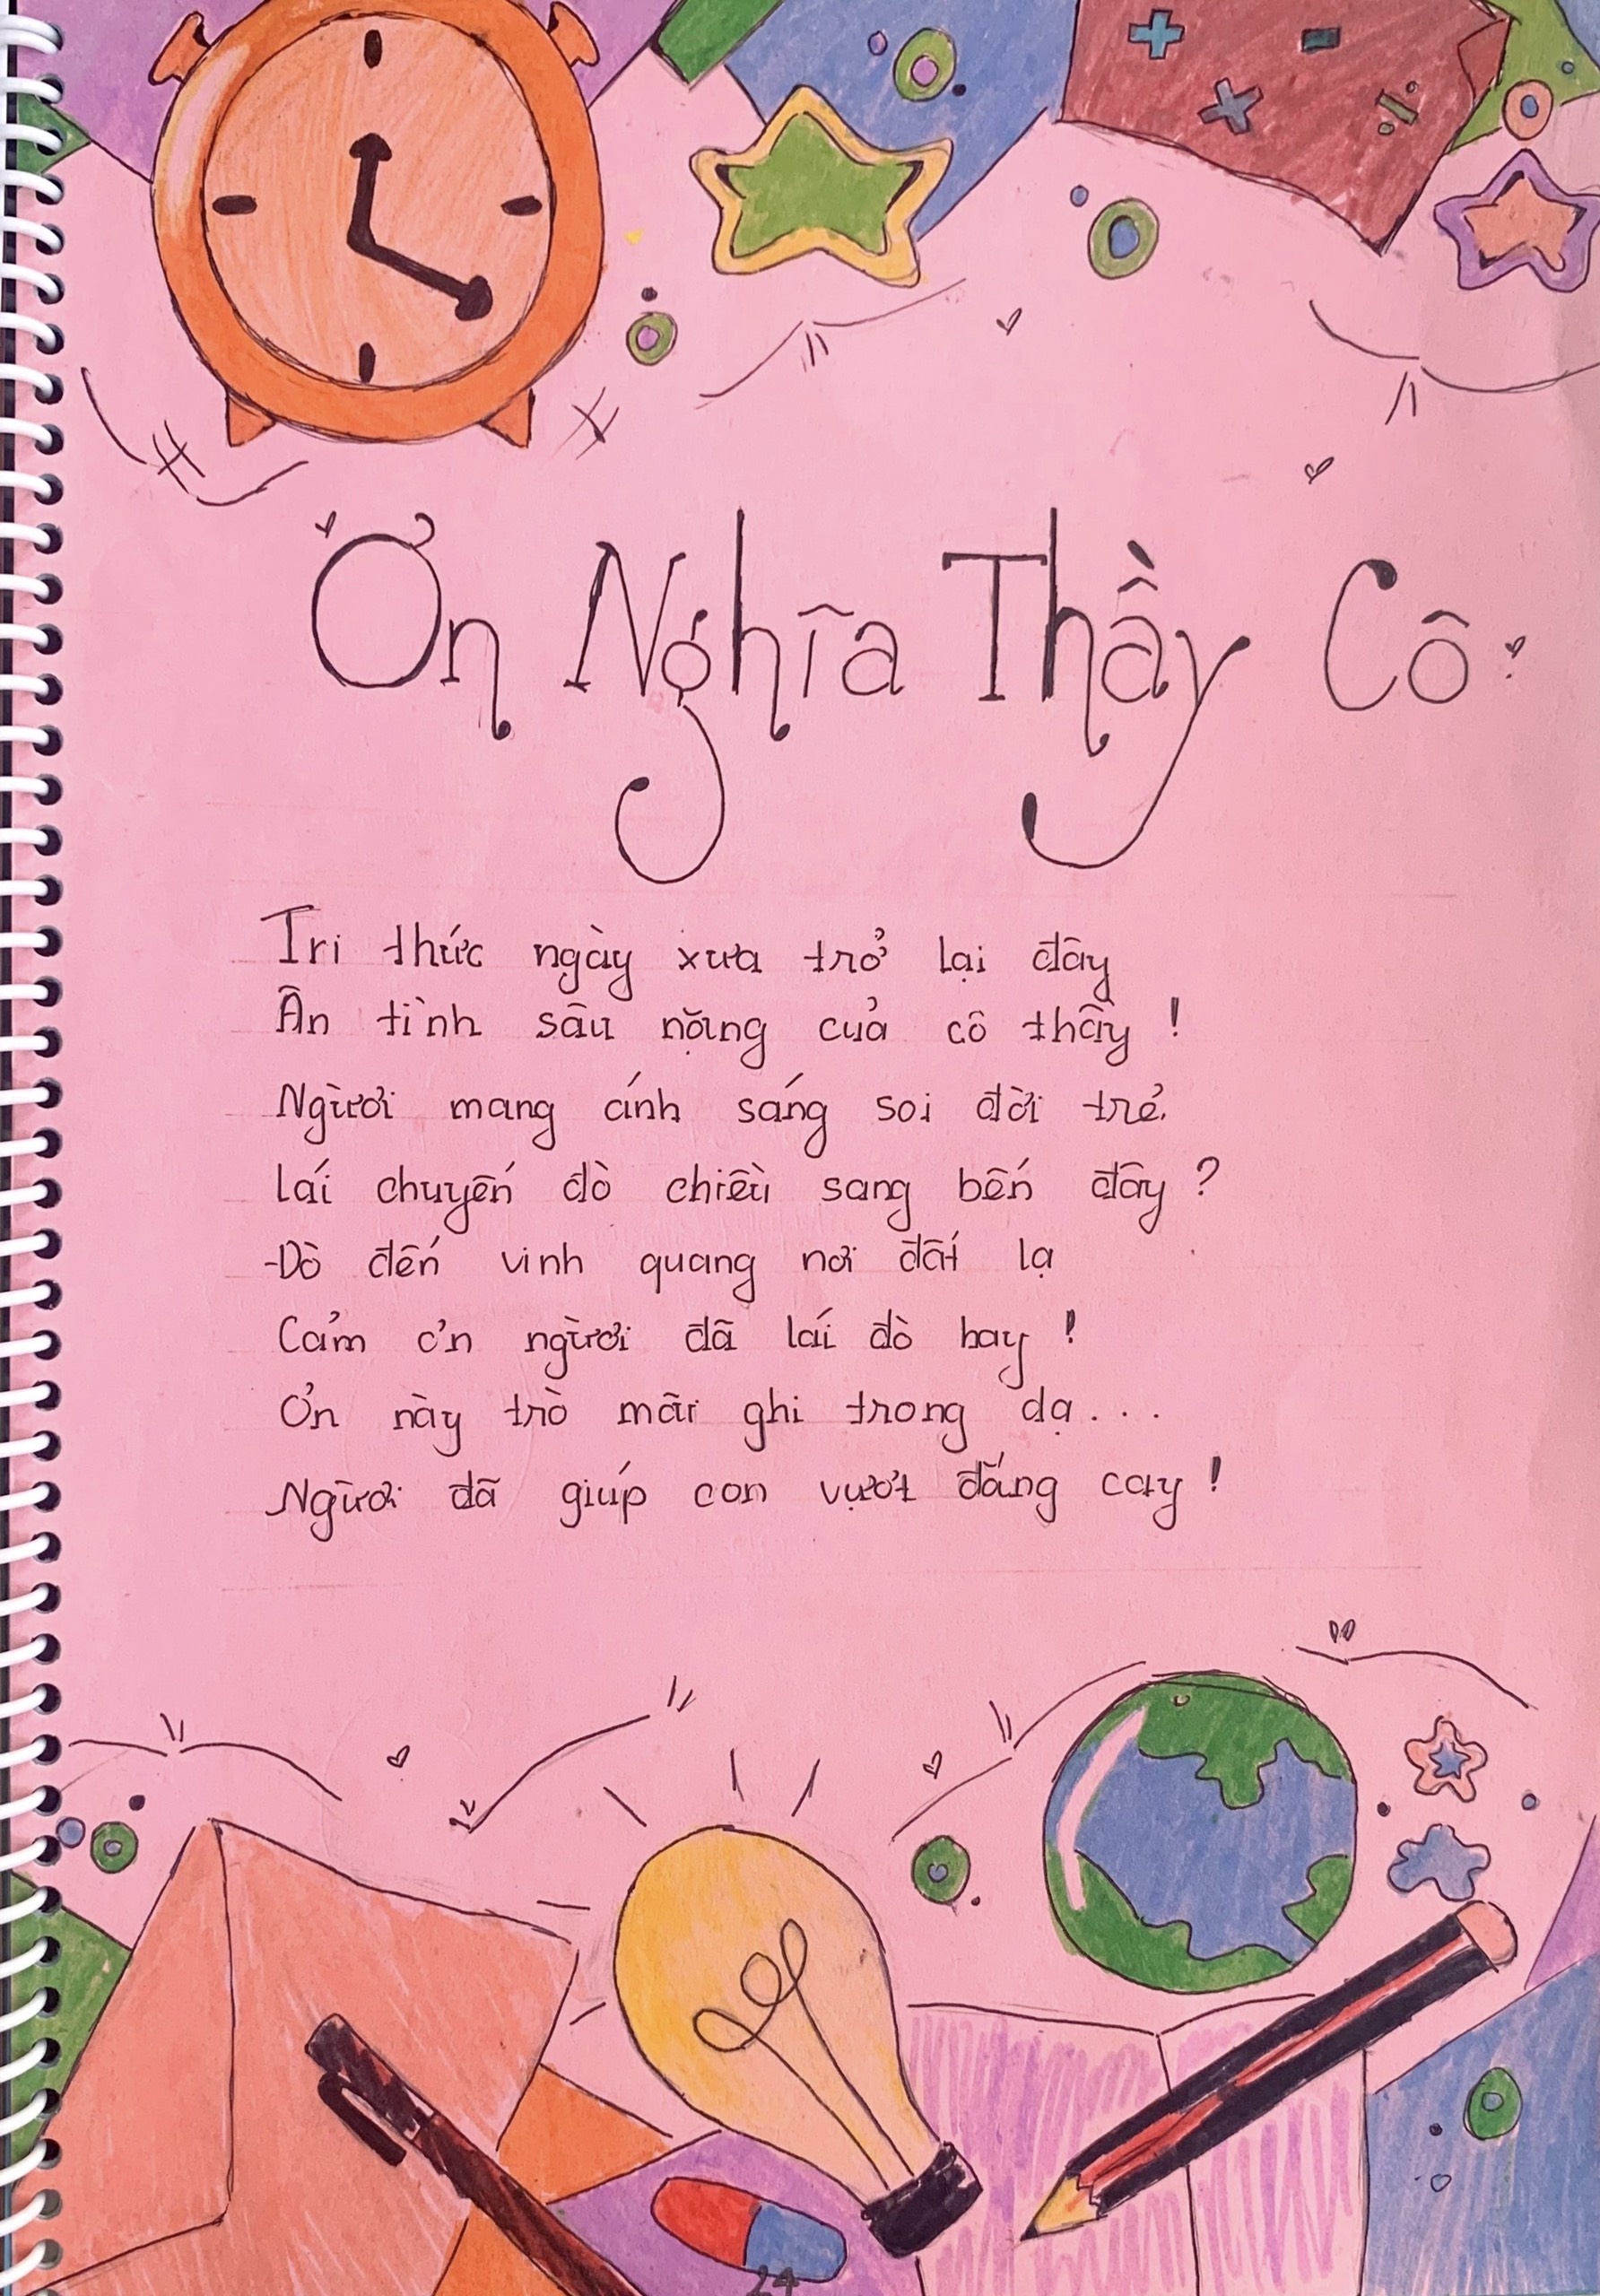 Ơn Nghĩa Thầy Cô
Tri thức ngày xưa trở lại đây
Ân tình sâu nặng của cô thầy !
Người mang ánh sáng soi đời trẻ
lái chuyến đò chiều sang bến đây ?
Đò đến vinh quang nơi đất lạ
Cảm ơn người đã lái đò hay !
Ơn này trò mãi ghi trong dạ...
Người đã giúp con vượt đắng cay !
24